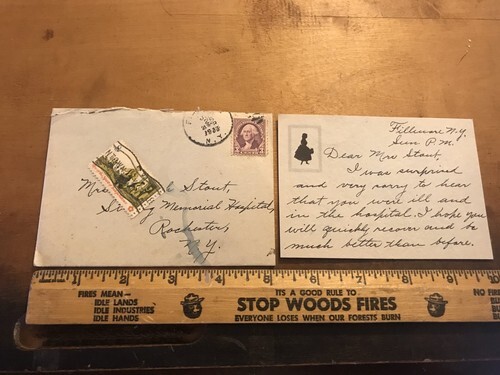 N.Y.
Mrs. Stout,
Memorial Hospital,
Rochester,
N.Y.
Fillmore N.Y.
Sun P.M.
Dear Mrs Stout,
I was surprised
and very sorry to hear
that you were ill and
in the hospital. I hope you
will quickly recover and be
much better than before.
1 2 3 4 5 6 7 8 9 10 11
FIRES MEAN—
IDLE LANDS
IDLE INDUSTRIES
IDLE HANDS
ITS A GOOD RULE TO
STOP WOODS FIRES
EVERYONE LOSES WHEN OUR FORESTS BURN
NO FIR